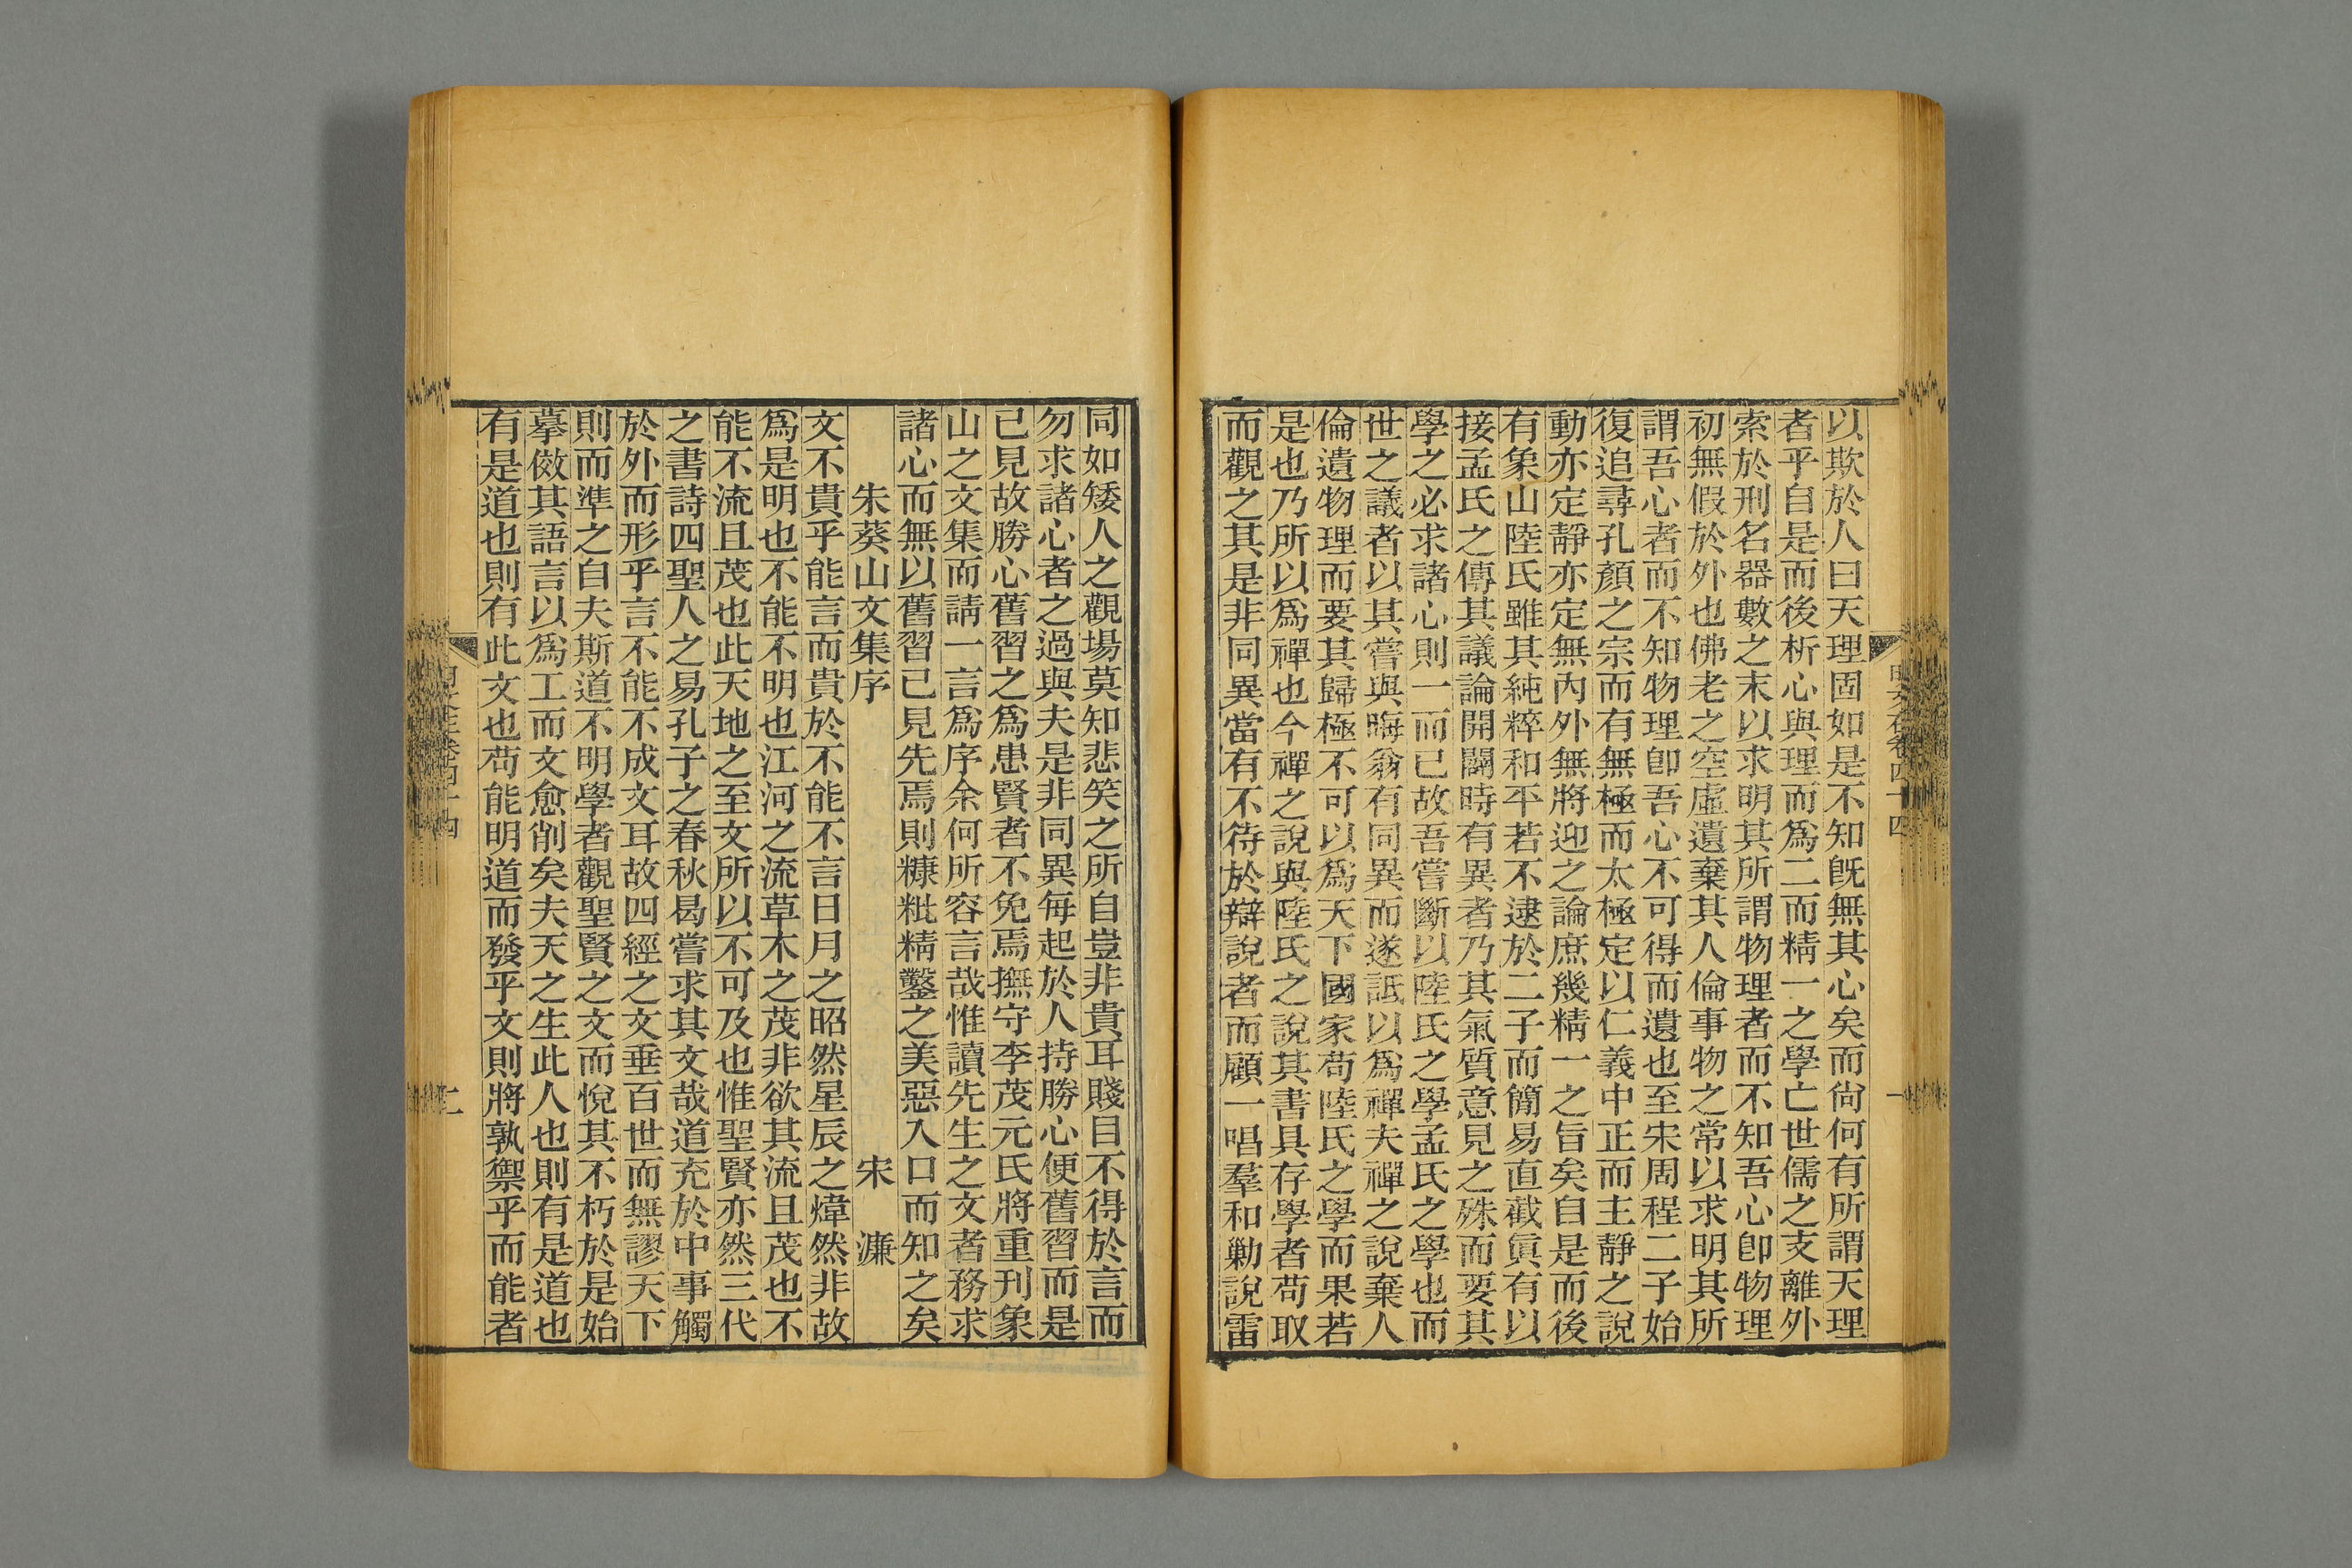 以欺於人曰天理固如是不知旣無其心矣而尙何有所謂天理
者乎自是而後析心與理而爲二而精一之學亡世儒之支離外
索於刑名器數之末以求明其所謂物理者而不知吾心卽物理
初無假於外也佛老之空虛遺棄其人倫事物之常以求明其所
謂吾心者而不知物理卽吾心不可得而遺也至宋周程二子始
復追尋孔顏之宗而有無極而太極定以仁義中正而主靜之說
動亦定靜亦定無內外無將迎之論庶幾精一之旨矣自是而後
有象山陸氏雖其純粹和平若不逮於二子而簡易直截眞有以
接孟氏之傳其議論開闢時有異者乃其氣質意見之殊而要其
學之必求諸心則一而已故吾嘗斷以陸氏之學孟氏之學也而
世之議者以其嘗與晦翁有同異而遂詆以爲禪夫禪之說棄人
倫遺物理而要其歸極不可以爲天下國家苟陸氏之學而果若
是也乃所以爲禪也今禪之說與陸氏之說其書具存學者苟取
而觀之其是非同異當有不待於辯說者而顧一唱羣和勦說雷
同如矮人之觀場莫知悲笑之所自豈非貴耳賤目不得於言而
勿求諸心者之過與夫是非同異每起於人持勝心便舊習而是
已見故勝心舊習之爲患賢者不免焉撫守李茂元氏將重刊象
山之文集而請一言爲序余何所容言哉惟讀先生之文者務求
諸心而無以舊習已見先焉則糠粃精鑿之美惡入口而知之矣
朱葵山文集序 宋濂
文不貴乎能言而貴於不能不言日月之昭然星辰之煒然非故
爲是明也不能不明也江河之流草木之茂非欲其流且茂也不
能不流且茂也此天地之至文所以不可及也惟聖賢亦然三代
之書詩四聖人之易孔子之春秋曷嘗求其文哉道充於中事觸
於外而形乎言不能不成文耳故四經之文垂百世而無謬天下
則而準之自夫斯道不明學者觀聖賢之文而悅其不朽於是始
摹倣其語言以爲工而文愈削矣夫天之生此人也則有是道也
有是道也則有此文也苟能明道而發乎文則將孰禦乎而能者